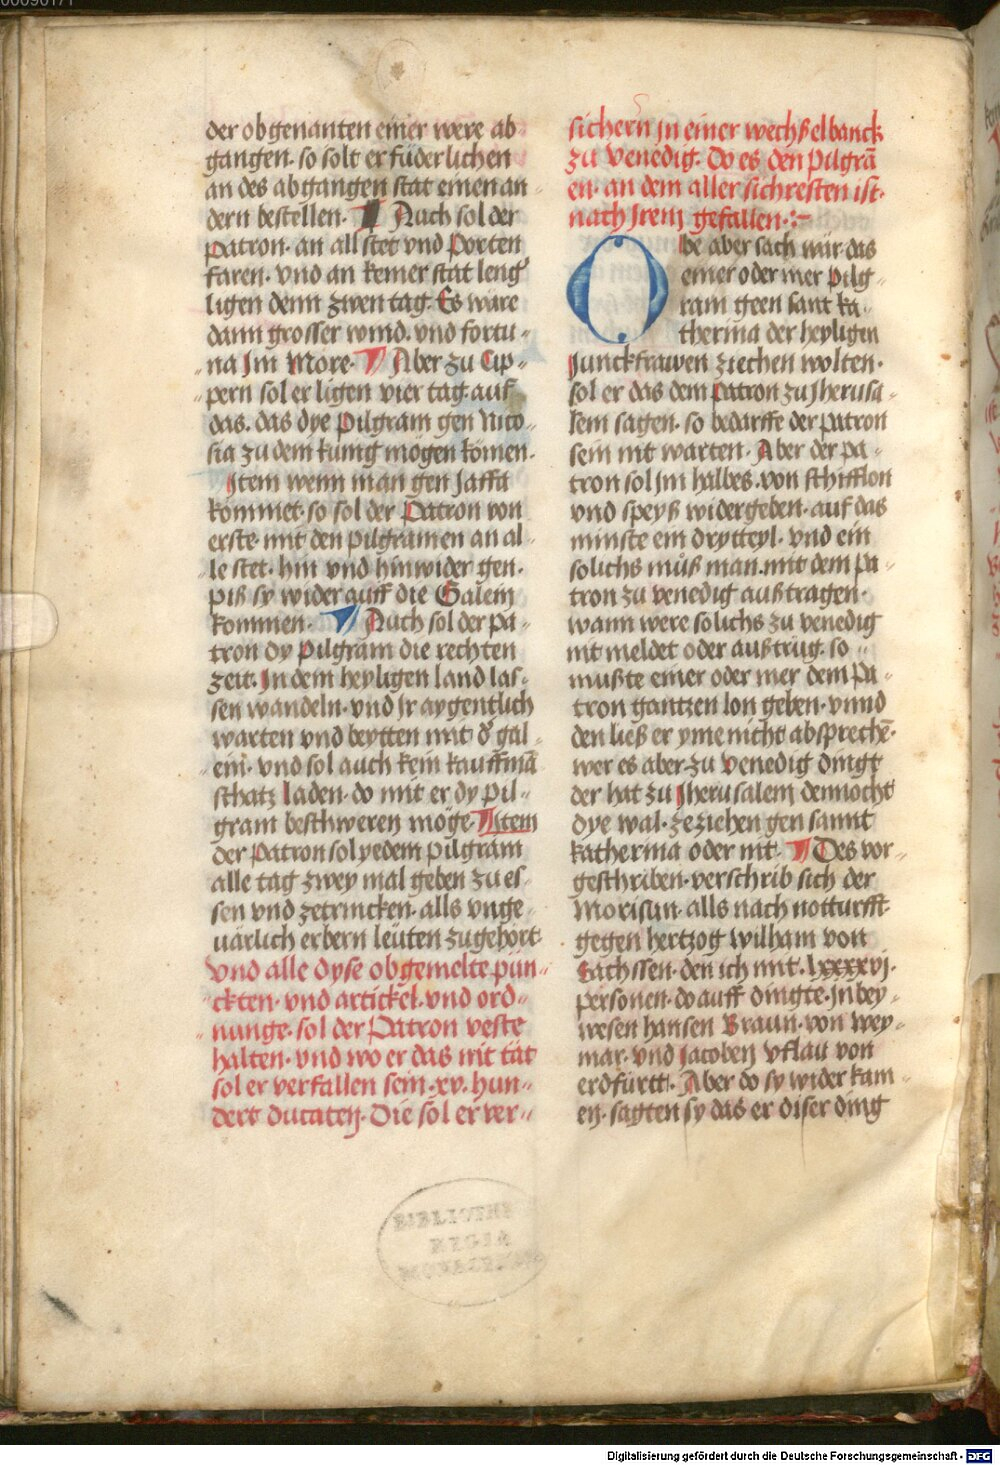 der obgenanten einer were ab
gangen· so solt er füderlichen
an des abgangen stat einen an
dern bestellen· Auch sol der
Patron· an all stet vnd Porten
faren· vnd an keiner stat leng
ligen denn zwen tag· Es wäre
dann grosser wind· vnd fortu-
na Im More· Aber zu Cip-
pern sol er ligen vier tag· auf
das· das dye Pilgram gen Nico-
sia zu dem kunig mögen kömen·
Item wenn man gen Jaffa
kömmet· so sol der Patron von
erste· mit den pilgramen an al-
le stet· hin vnd hinwider gen·
piß sy wider auff die Galein
kömmen· Auch sol der pa-
tron dy Pilgram die rechten
zeit· In dem heyligen land las-
sen wandeln· vnd Ir aygentlich
warten vnd beytten mit d' gal-
ein· vnd sol auch kein kauffmā
schatz laden· do mit er dy pil-
gram beschweren möge· Item
der Patron sol yedem pilgram
alle tag zwey mal geben zu es-
sen vnd zetrincken· alls vnge-
uärlich erbern leüten zugehört·
vnd alle dyse obgemelte pün-
ckten· vnd artickel· vnd ord-
nunge· sol der Patron veste
halten· vnd wo er das nit tät
sol er verfallen sein· xv· hun-
dert ducaten· Die sol er ver-
sichern in einer wechßelbanck
zu venedig· Do es den pilgrā
en· an dem aller sichresten ist·
nach Irem gefallen·
Obe aber sach wär· das
einer oder mer pilg-
ram geen sant ka-
therina der heyligen
Junckfrawen ziechen wolten·
sol er das dem Patron zu Jherusa-
lem sagen· so bedarffe der patron
sein nit warten· Aber der pa-
tron sol im halbes· von schifflon
vnd speyß widergeben· auf das
minste ein drytteyl· vnd ein
solichs müß man· mit dem pa-
tron zu venedig außtragen·
wann were solichs zu venedig
nit meldet oder außtrüg· so
mußte einer oder mer dem pa-
tron gantzen lon geben· vnnd
den ließ er yme nicht absprechē·
wer es aber zu venedig dingt
der hat zu Jherusalem dennocht
dye wal· zeziehen gen sannt
katherina oder nit· Des vor-
geschriben· verschrib sich der
Morisan· alls nach notturfft·
gegen hertzog wilham von
Sachssen· den ich mit· lxxxxvj·
personen· do auff dingte· In bey-
wesen hansen Braun· von wey-
mar· vnd Jacoben vflau von
erdfürtt· Aber do sy wider kam-
en· sagten sy das er diser ding
BIBLIOTHE
REGIA
MONACENSIS
Digitalisierung gefördert durch die Deutsche Forschungsgemeinschaft - DFG